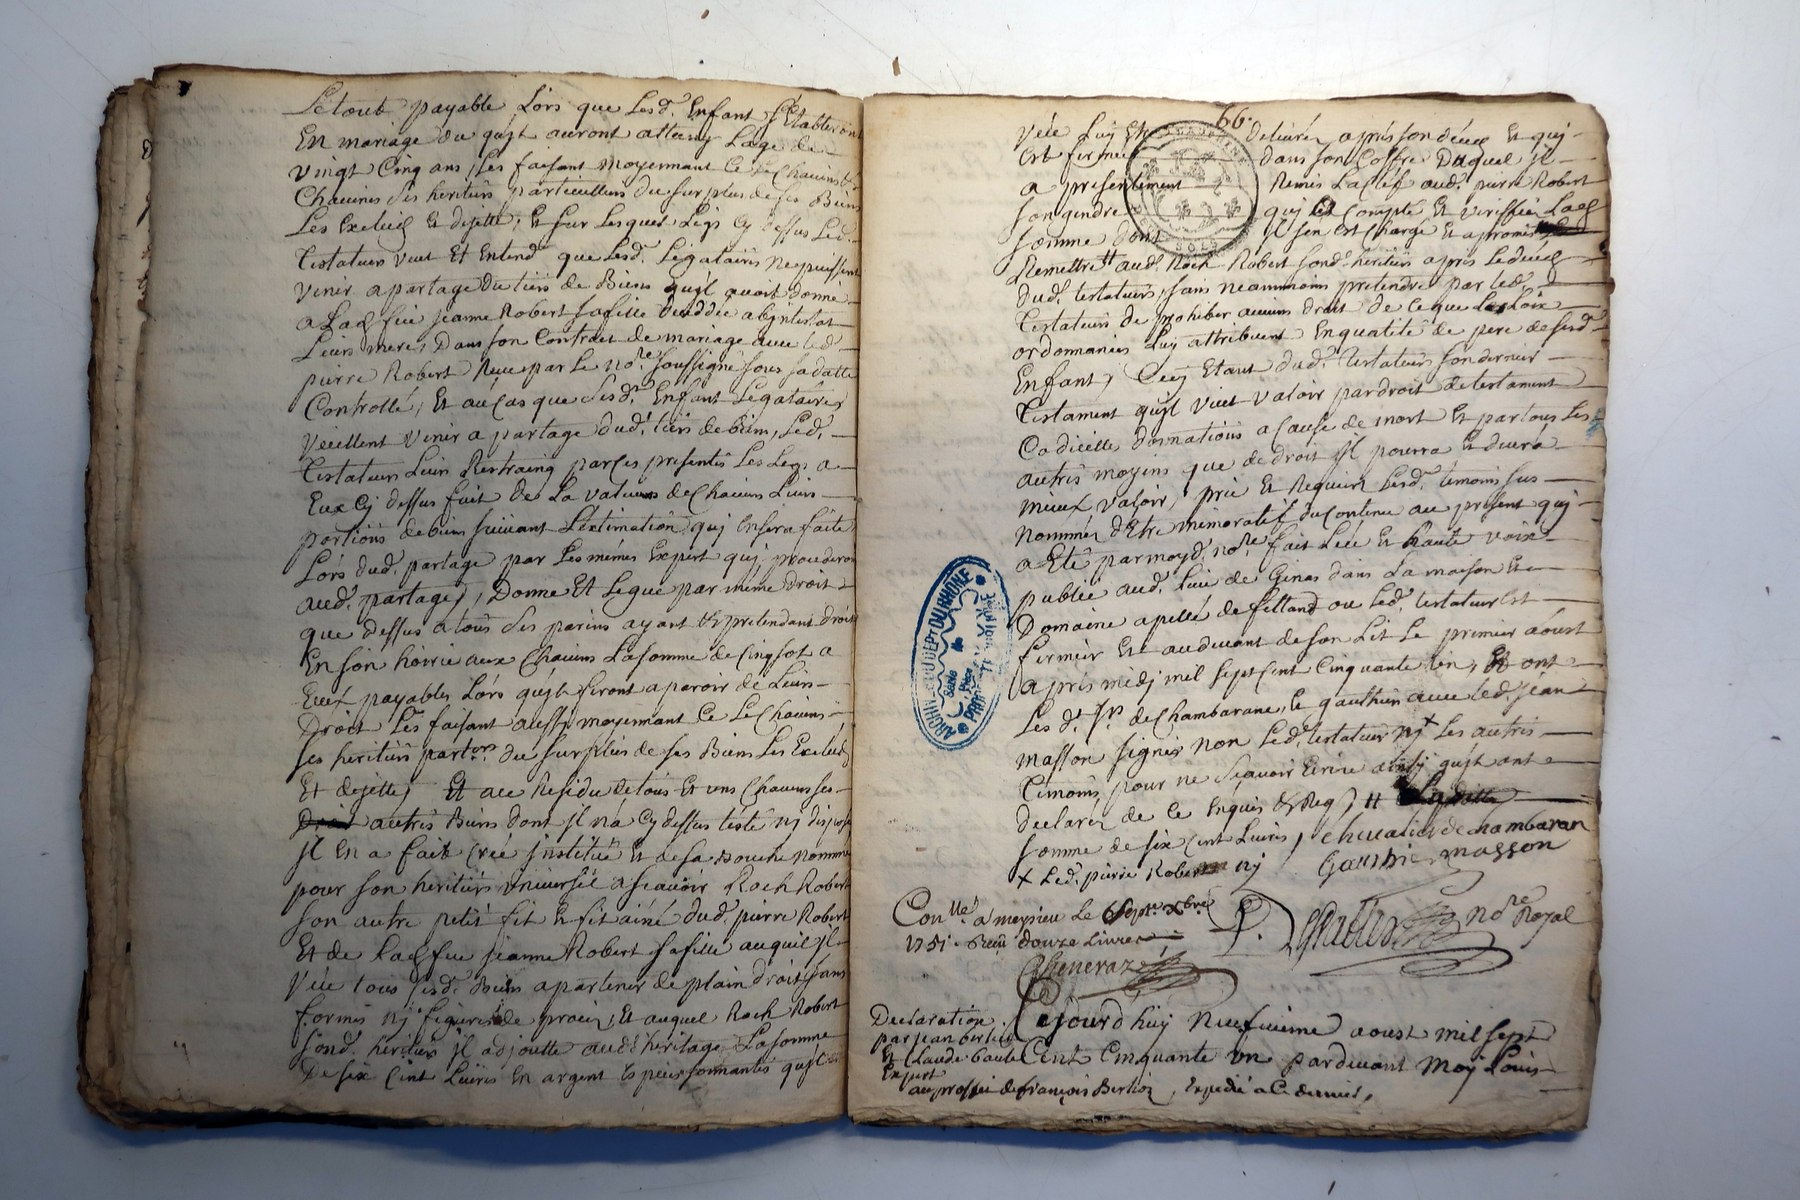 Le tout payable Lors que Lesd. Enfant s'Etabliron
En mariage ou qu'jl auront attaint Lage de
vingt Cinq ans, Les faisant moyennant ce Le Chacuns
Chacunes ses heritiers particulliers du surplus de ses Biens
Les Exclud Et dejette, Et sur Lesquels Legs Cy dessus Led.
Testateur veut Et Entend que Lesd. Legataires ne puissent
venir a partage du tiers de Biens qu'jl avoit donné
a Lad. feue jeanne Robert sa fille deceddée abjntestat
Leurs mere, Dans son Contrat de mariage avec led.
pierre Robert Receu par Le no.re soussigné sous sa datte
Controllé, Et au Cas que Lesd. Enfant Legataires
veuillent venir a partage dud. tiers de Bien, Led.
Testateur Leurs Restraing par ces presentes Les Legs a
Eux Cy dessus fait de La valeur de Chacuns Leurs
portions de bien suivant L'extimation quj En sera faite
Lors dud. partage par Les memes Expert quj procederon
aud. partage, Donne Et Legue par meme Droit
que dessus a tous ses parens ayant Et pretendant droit
En son hoirie aux Chacuns La somme de Cinq sol a
Eux payables Lors qu'jls feront aparoir de Leurs
Droit Les faisant aussy moyennant Ce Le Chacuns
ses heritiers part.ers du surplus de ses Biens Les Exclud
Et dejette, Et au Residu de tous Et uns Chacuns ses
Droit autres Biens dont jl n'a Cy dessus testé nj disposé
jl En a fait Creé jnstitué Et de sa Bouche nommé
pour son heritiers universel a scavoir Roch Robert
son autre petit fil Et fil ainé dud. pierre Robert
Et de Lad. feue jeanne Robert sa fille auquel jl
veut tous sesd. Biens apartenir de plain droit sans
formes nj figures de procez, Et auquel Roch Robert
sond. heritiers jl adjoutte aud. heritage La somme
De six Cent Livres En argent Especes sonnantes qu'jl
66.
veut Luy Etre delivrez aprés son déces Et quj
Est fermée dans son Coffre Duquel jl
a presentement Remis La Clef aud. pierre Robert
son gendre quj Et Compté Et verifiée Lad.
somme dont jl s'en Est Chargé Et a promis
Remettre # aud. Roch Robert sond. heritiers aprés Le deces
dud. testateur, sans neanmoins pretendre par led.
Testateur de prohiber aucuns droit de ce que Les Loix
ordonnances Luy attribuent En qualité de pere de sesd.
Enfant, Cecy Etant dud. testateur son dernier
Testament qu'jl veut valoir par droit de testament
Codicille, donnations a Cause de mort Et par tous Les
autres moyens que de droit jl pourra Et devra
mieux valoir, prie Et Requiert Lesd. temoins sus
nommés d'Etre memoratif du Contenu au present quj
a Eté par moyd. no.re fait Leu Et a haute voix
publié aud. Lieu de Genas dans La maison Et
Domaine apellé de felland ou Led. testateur Est
fermier Et au devant de son Lit Le premier aoust
aprés midj mil sept Cent Cinquante un, Et ont
Les d. Sr. de Chambarane, le gauthier avec led. jean
masson signés non Led. testateur nj x Les autres
Temoins, pour ne scavoir Ecrire ainsj qu'jl ont
declarez de ce Enquis Et Req. # La ditte
somme de six Cent Livres, Chevalier de chambaran
x Led. pierre Robert nj Gauthier masson
Con.llé a meysieu Le Sept. xbre
1751. Receu douze Livres no.re Royal
Cheneraz
ARCHIVES DU DEPT DU RHÔNE
Declaration
par jean berlioz
Et Claude Gaubel
Expert
au proffit de françois Berlioz, Expedié a Ce dernier.
Cejourd'huy Neufvieme aoust mil sept
Cent Cinquante un pardevant Moy Louis